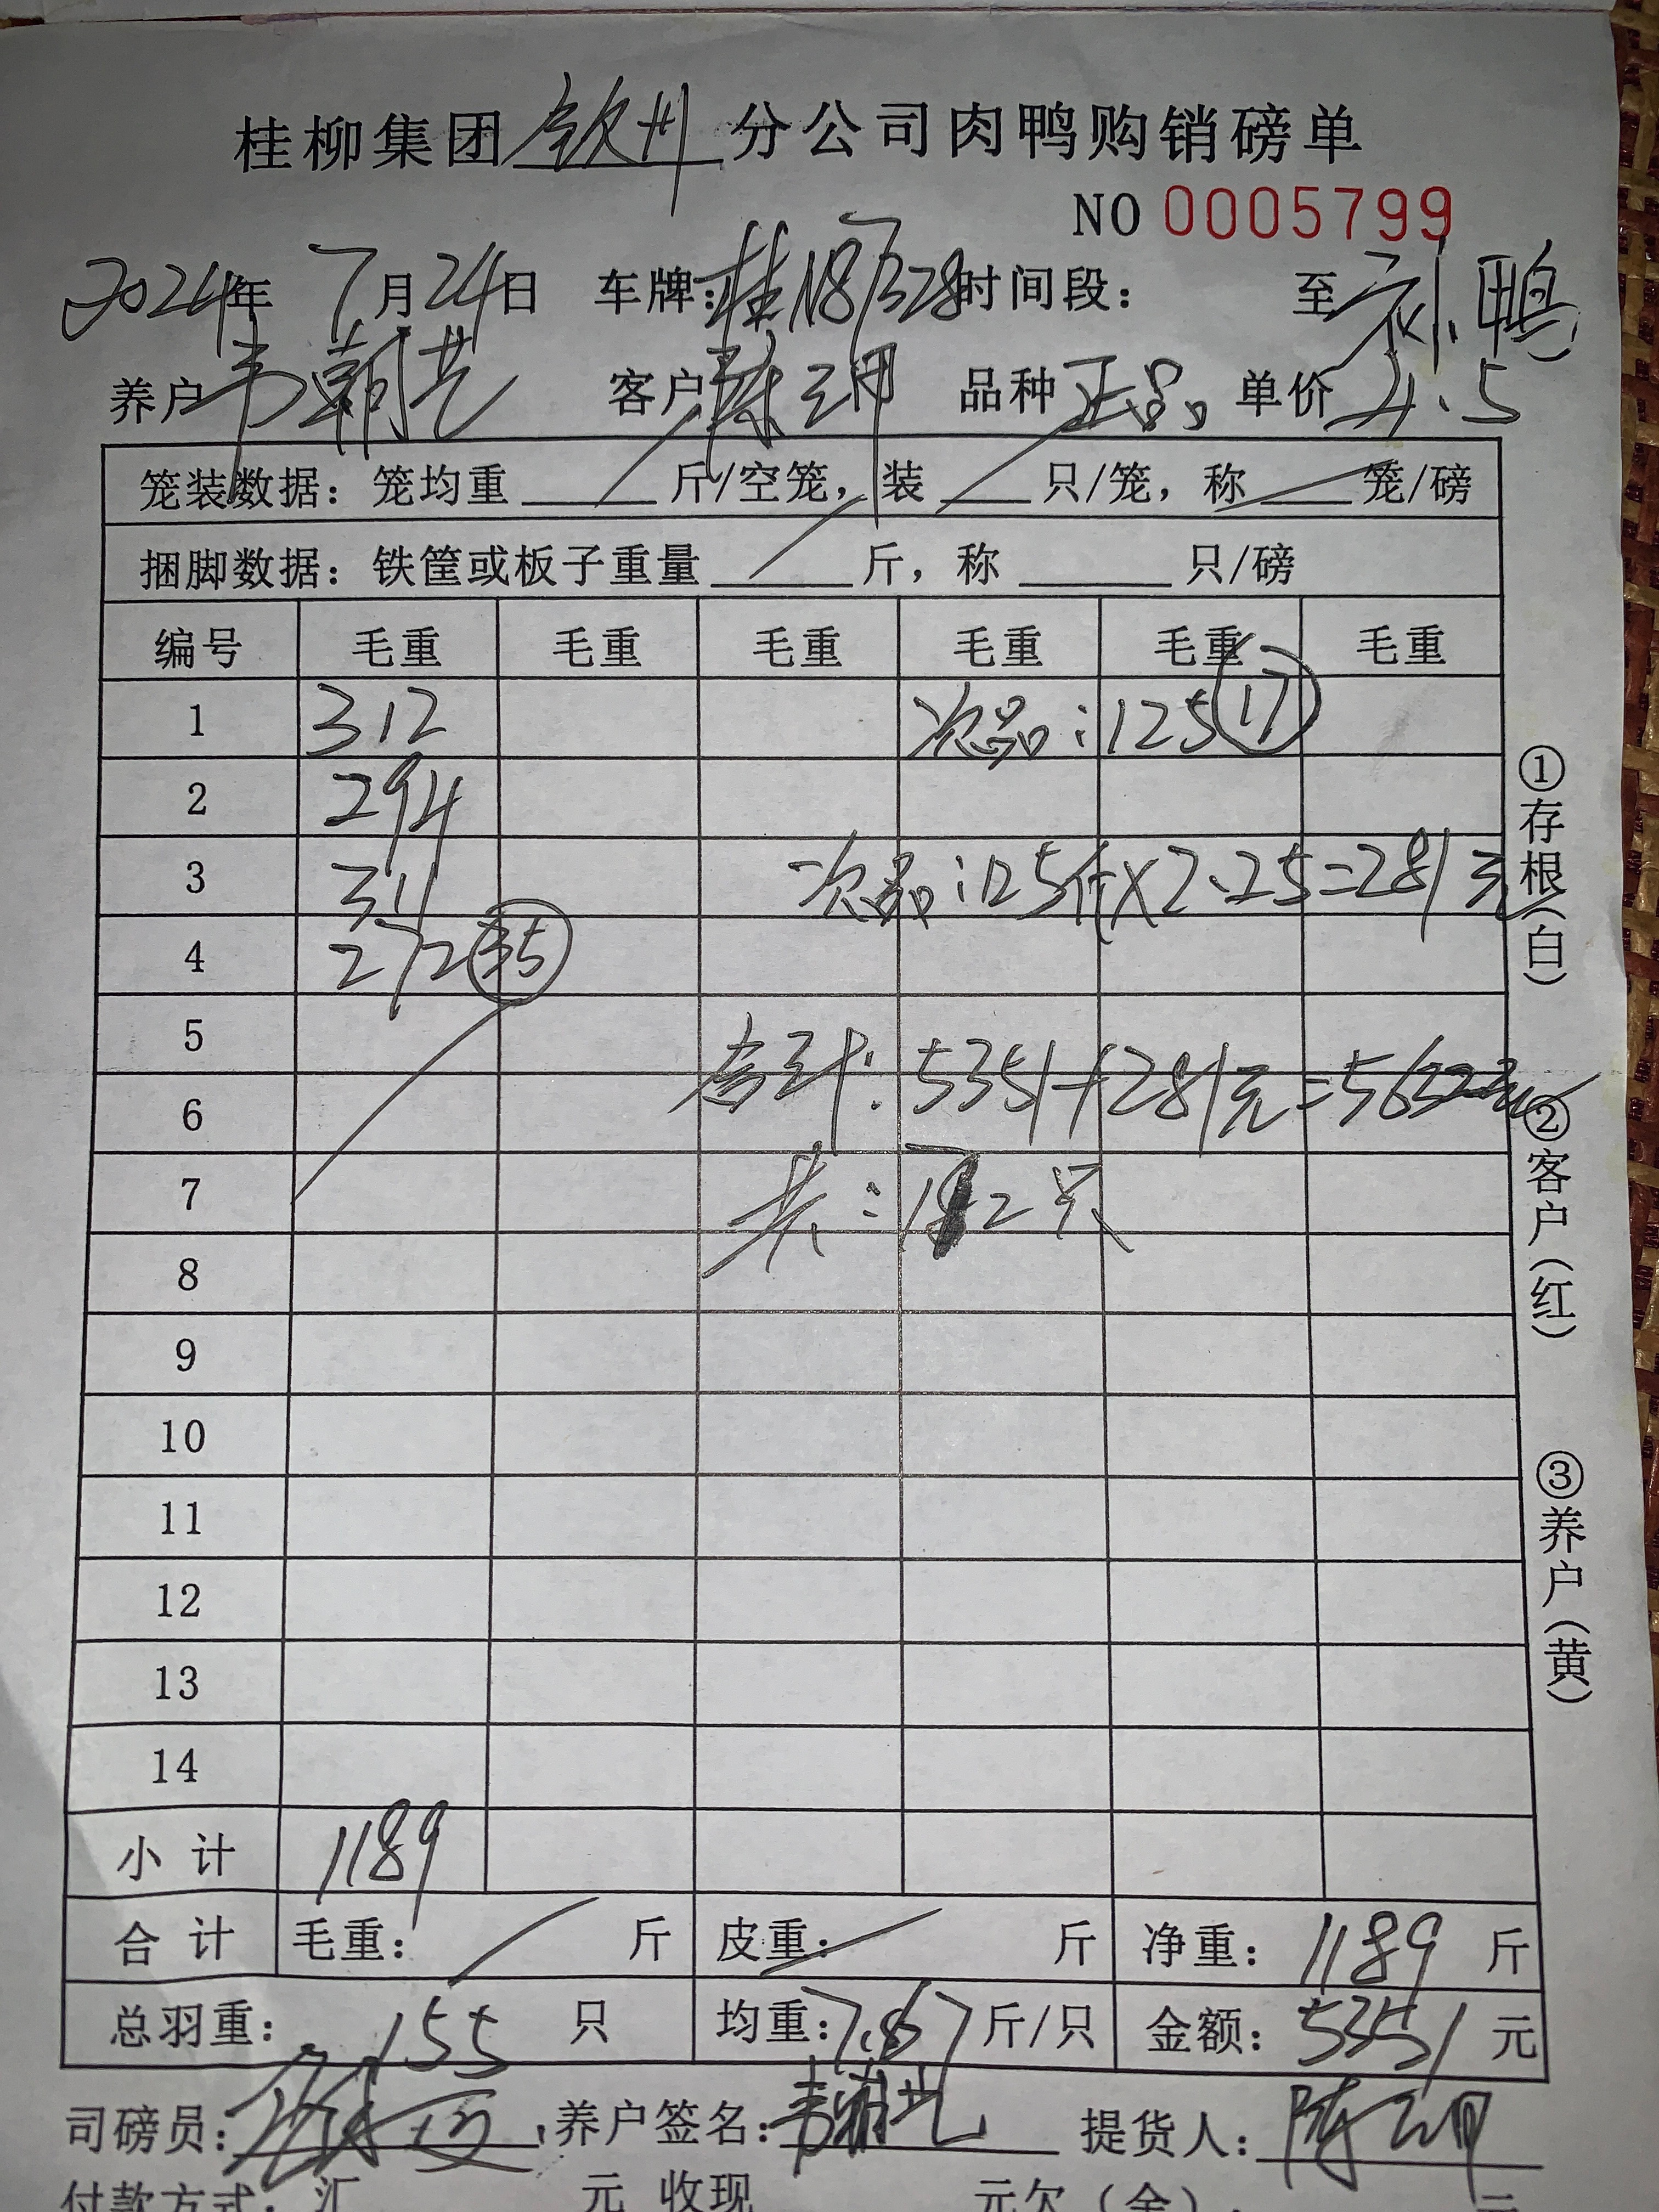 桂柳集团钦州分公司肉鸭购销磅单
NO 0005799
2024年 7月24日 车牌:桂N8 328 时间段: 至 鸭
养户 韦朝艺 客户 陈 品种 正品 单价 4.5
笼装数据: 笼均重 斤/空笼, 装 只/笼, 称 笼/磅
捆脚数据: 铁筐或板子重量 斤, 称 只/磅
编号 毛重 毛重 毛重 毛重 毛重 毛重
1 312 次品:125 17
2 294
3 311 次品:125斤×2.25=281元
4 272 35
5
6 合计:5351+281元=5632元
7 共: 2只
8
9
10
11
12
13
14
小计 1189
合计 毛重: 斤 皮重: 斤 净重: 1189 斤
总羽重: 155 只 均重:7.67斤/只 金额: 5351 元
司磅员: 养户签名:韦朝艺 提货人: 陈
付款方式: 汇 元 收现 元欠(余). 元
①存根(白)
②客户(红)
③养户(黄)